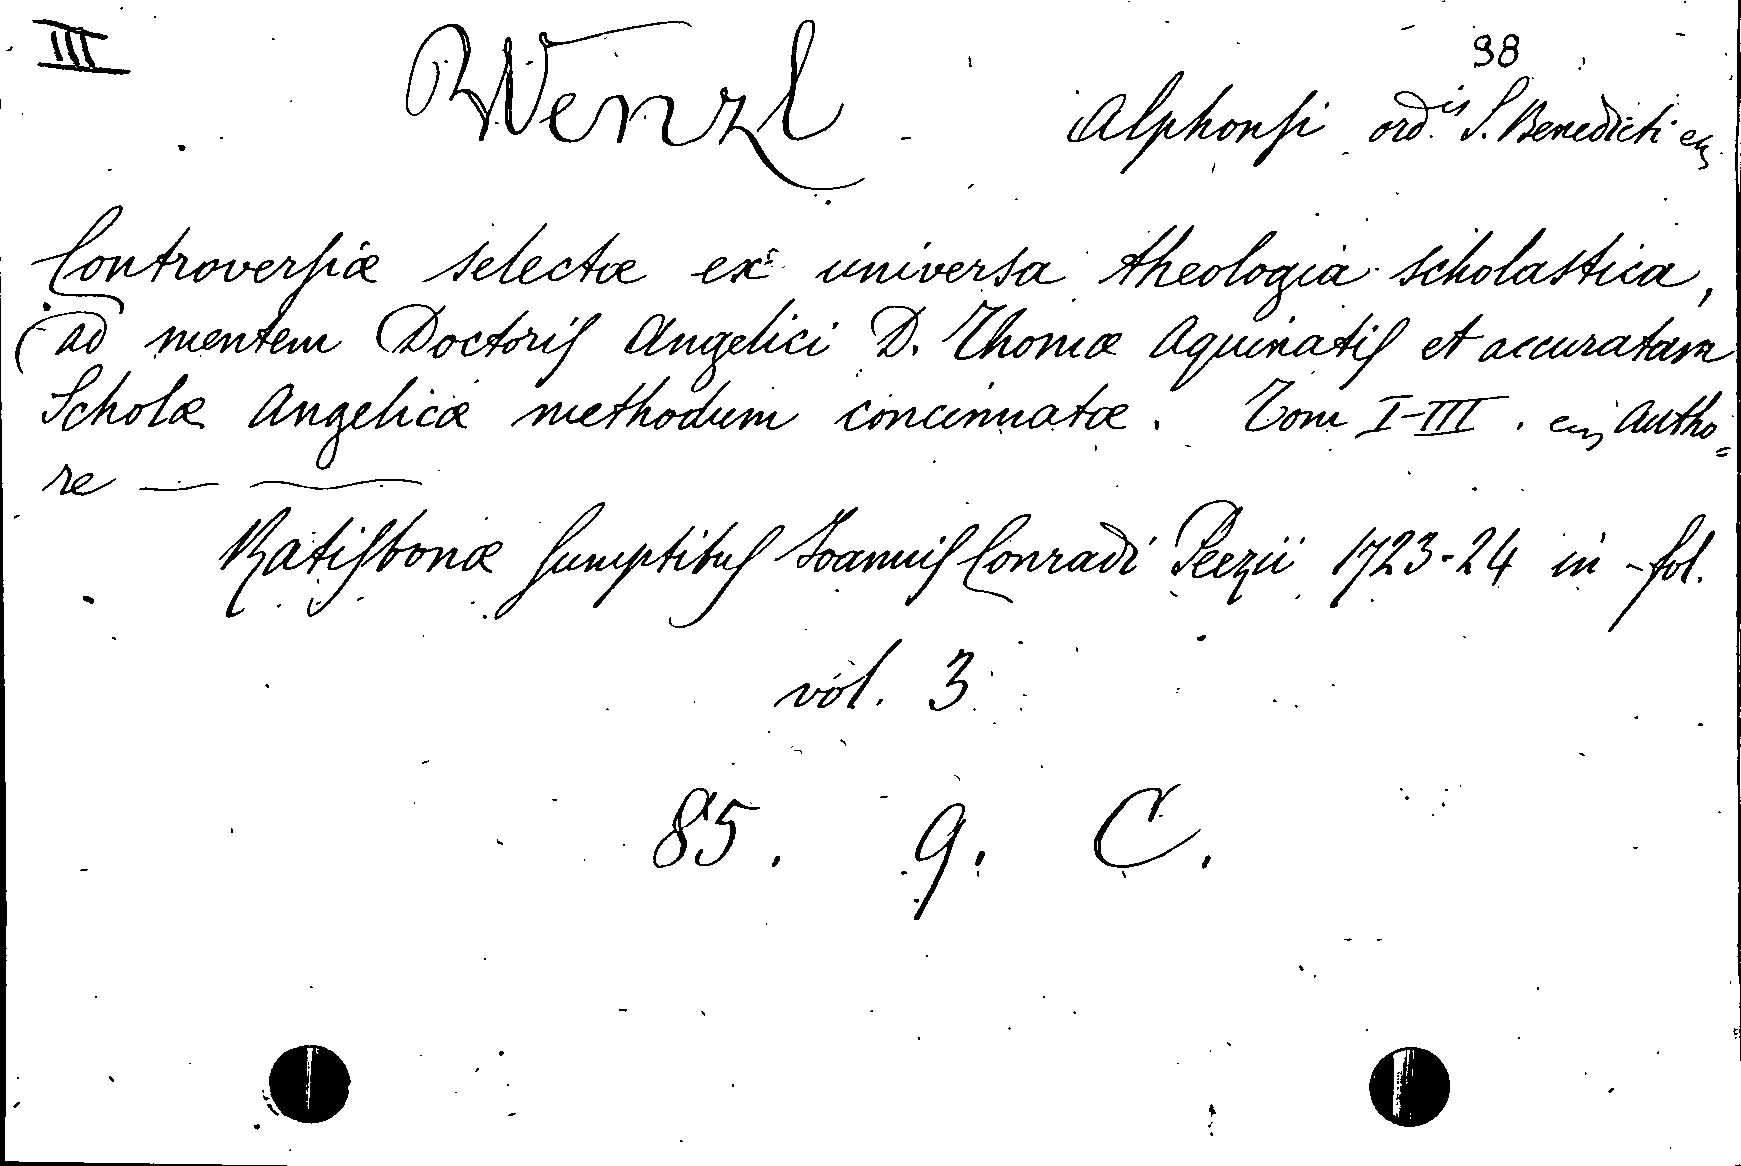 III
98
Wenzl Alphonsi ord.is S. Benedicti etc
Controversiæ selectæ ex universa theologia scholastica,
ad mentem Doctoris Angelici D. Thomæ Aquinatis et accuratam
Scholæ Angelicæ methodum concinnatæ. Tom I-III. etc Autho=
re — —
Ratisbonæ sumptibus Joannis Conradi Peezii 1723-24 in-fol.
vol. 3
85. 9. C.